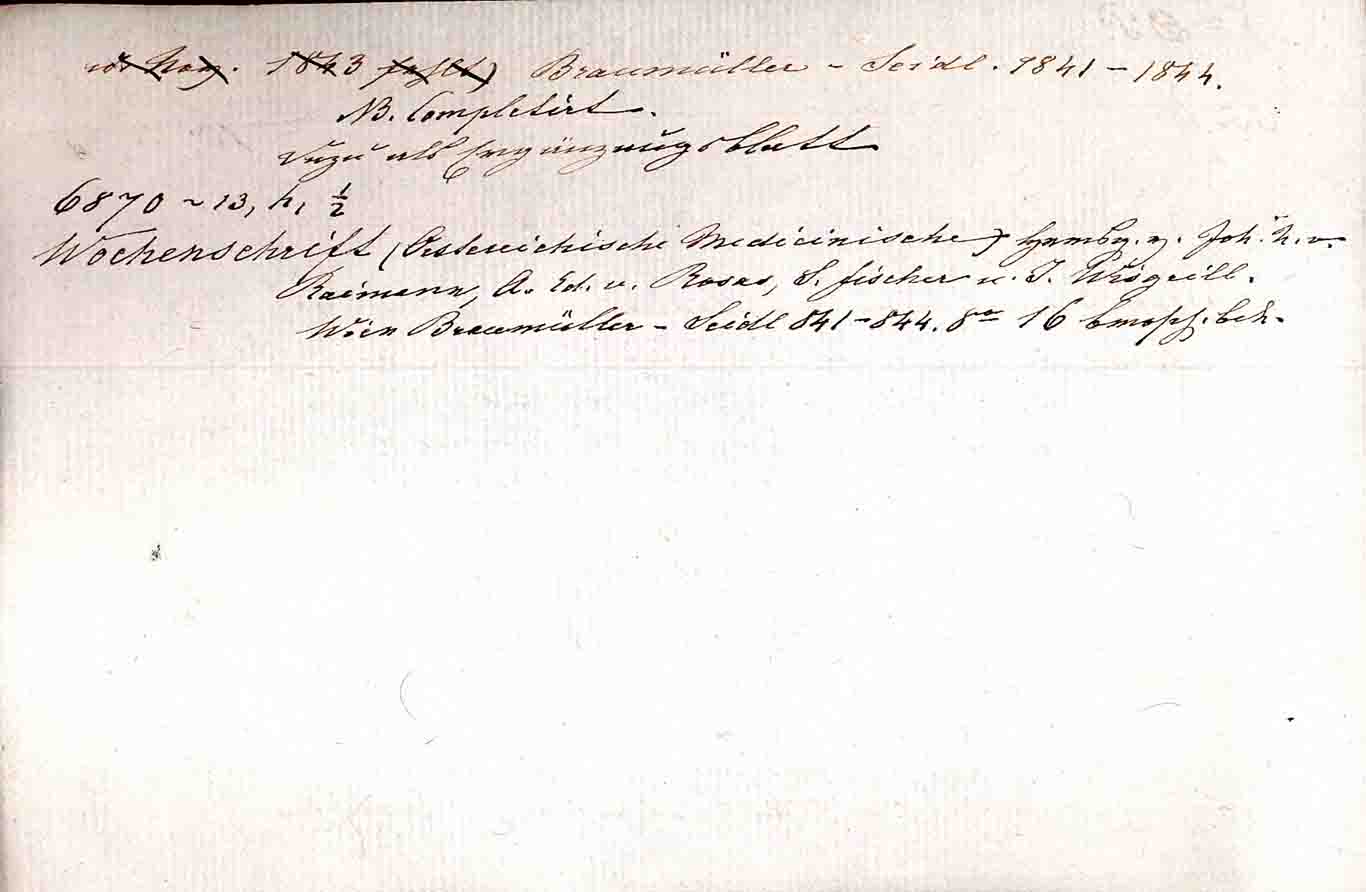 1843 fehlt) Braumüller - Seidl. 1841 - 1844.
NB. Completirt.
dazu als Ergänzungsblatt
6870 ~ 13, h, ½
Wochenschrift (Östereichische Medicinische) Joh. N. v.
Raimann, A. Ed. v. Rosas, S. Fischer u. J.
Wien Braumüller - Seidl 841-844. 8º 16